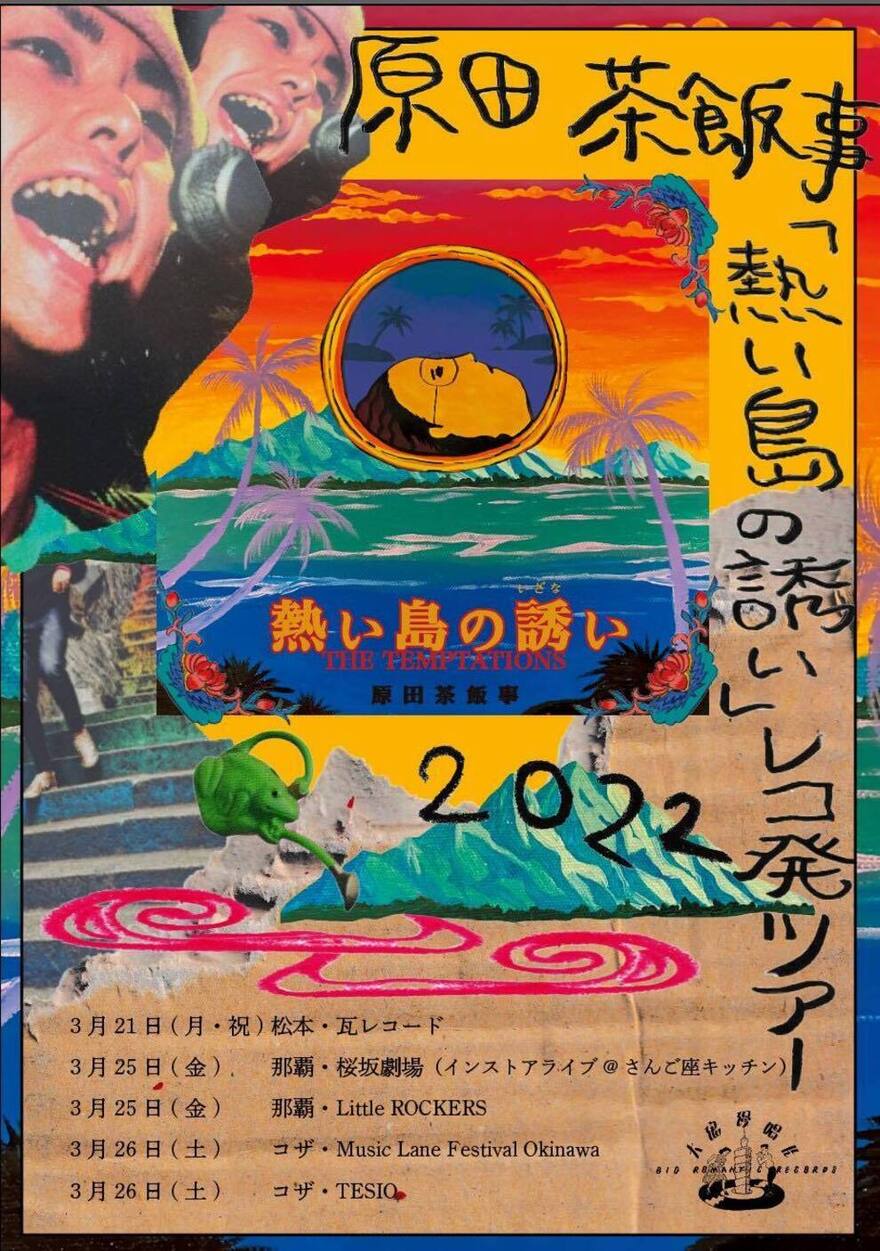 原田 茶飯事
「熱い島の誘い」レコ発ツアー
いざな
熱い島の誘い
THE TEMPTATIONS
原田茶飯事
2022
3月21日(月・祝)松本・瓦レコード
3月25日(金) 那覇・桜坂劇場(インストアライブ@さんご座キッチン)
3月25日(金) 那覇・Little ROCKERS
3月26日(土) コザ・Music Lane Festival Okinawa
3月26日(土) コザ・TESIO
大浪漫唱片
BIG ROMANTIC RECORDS